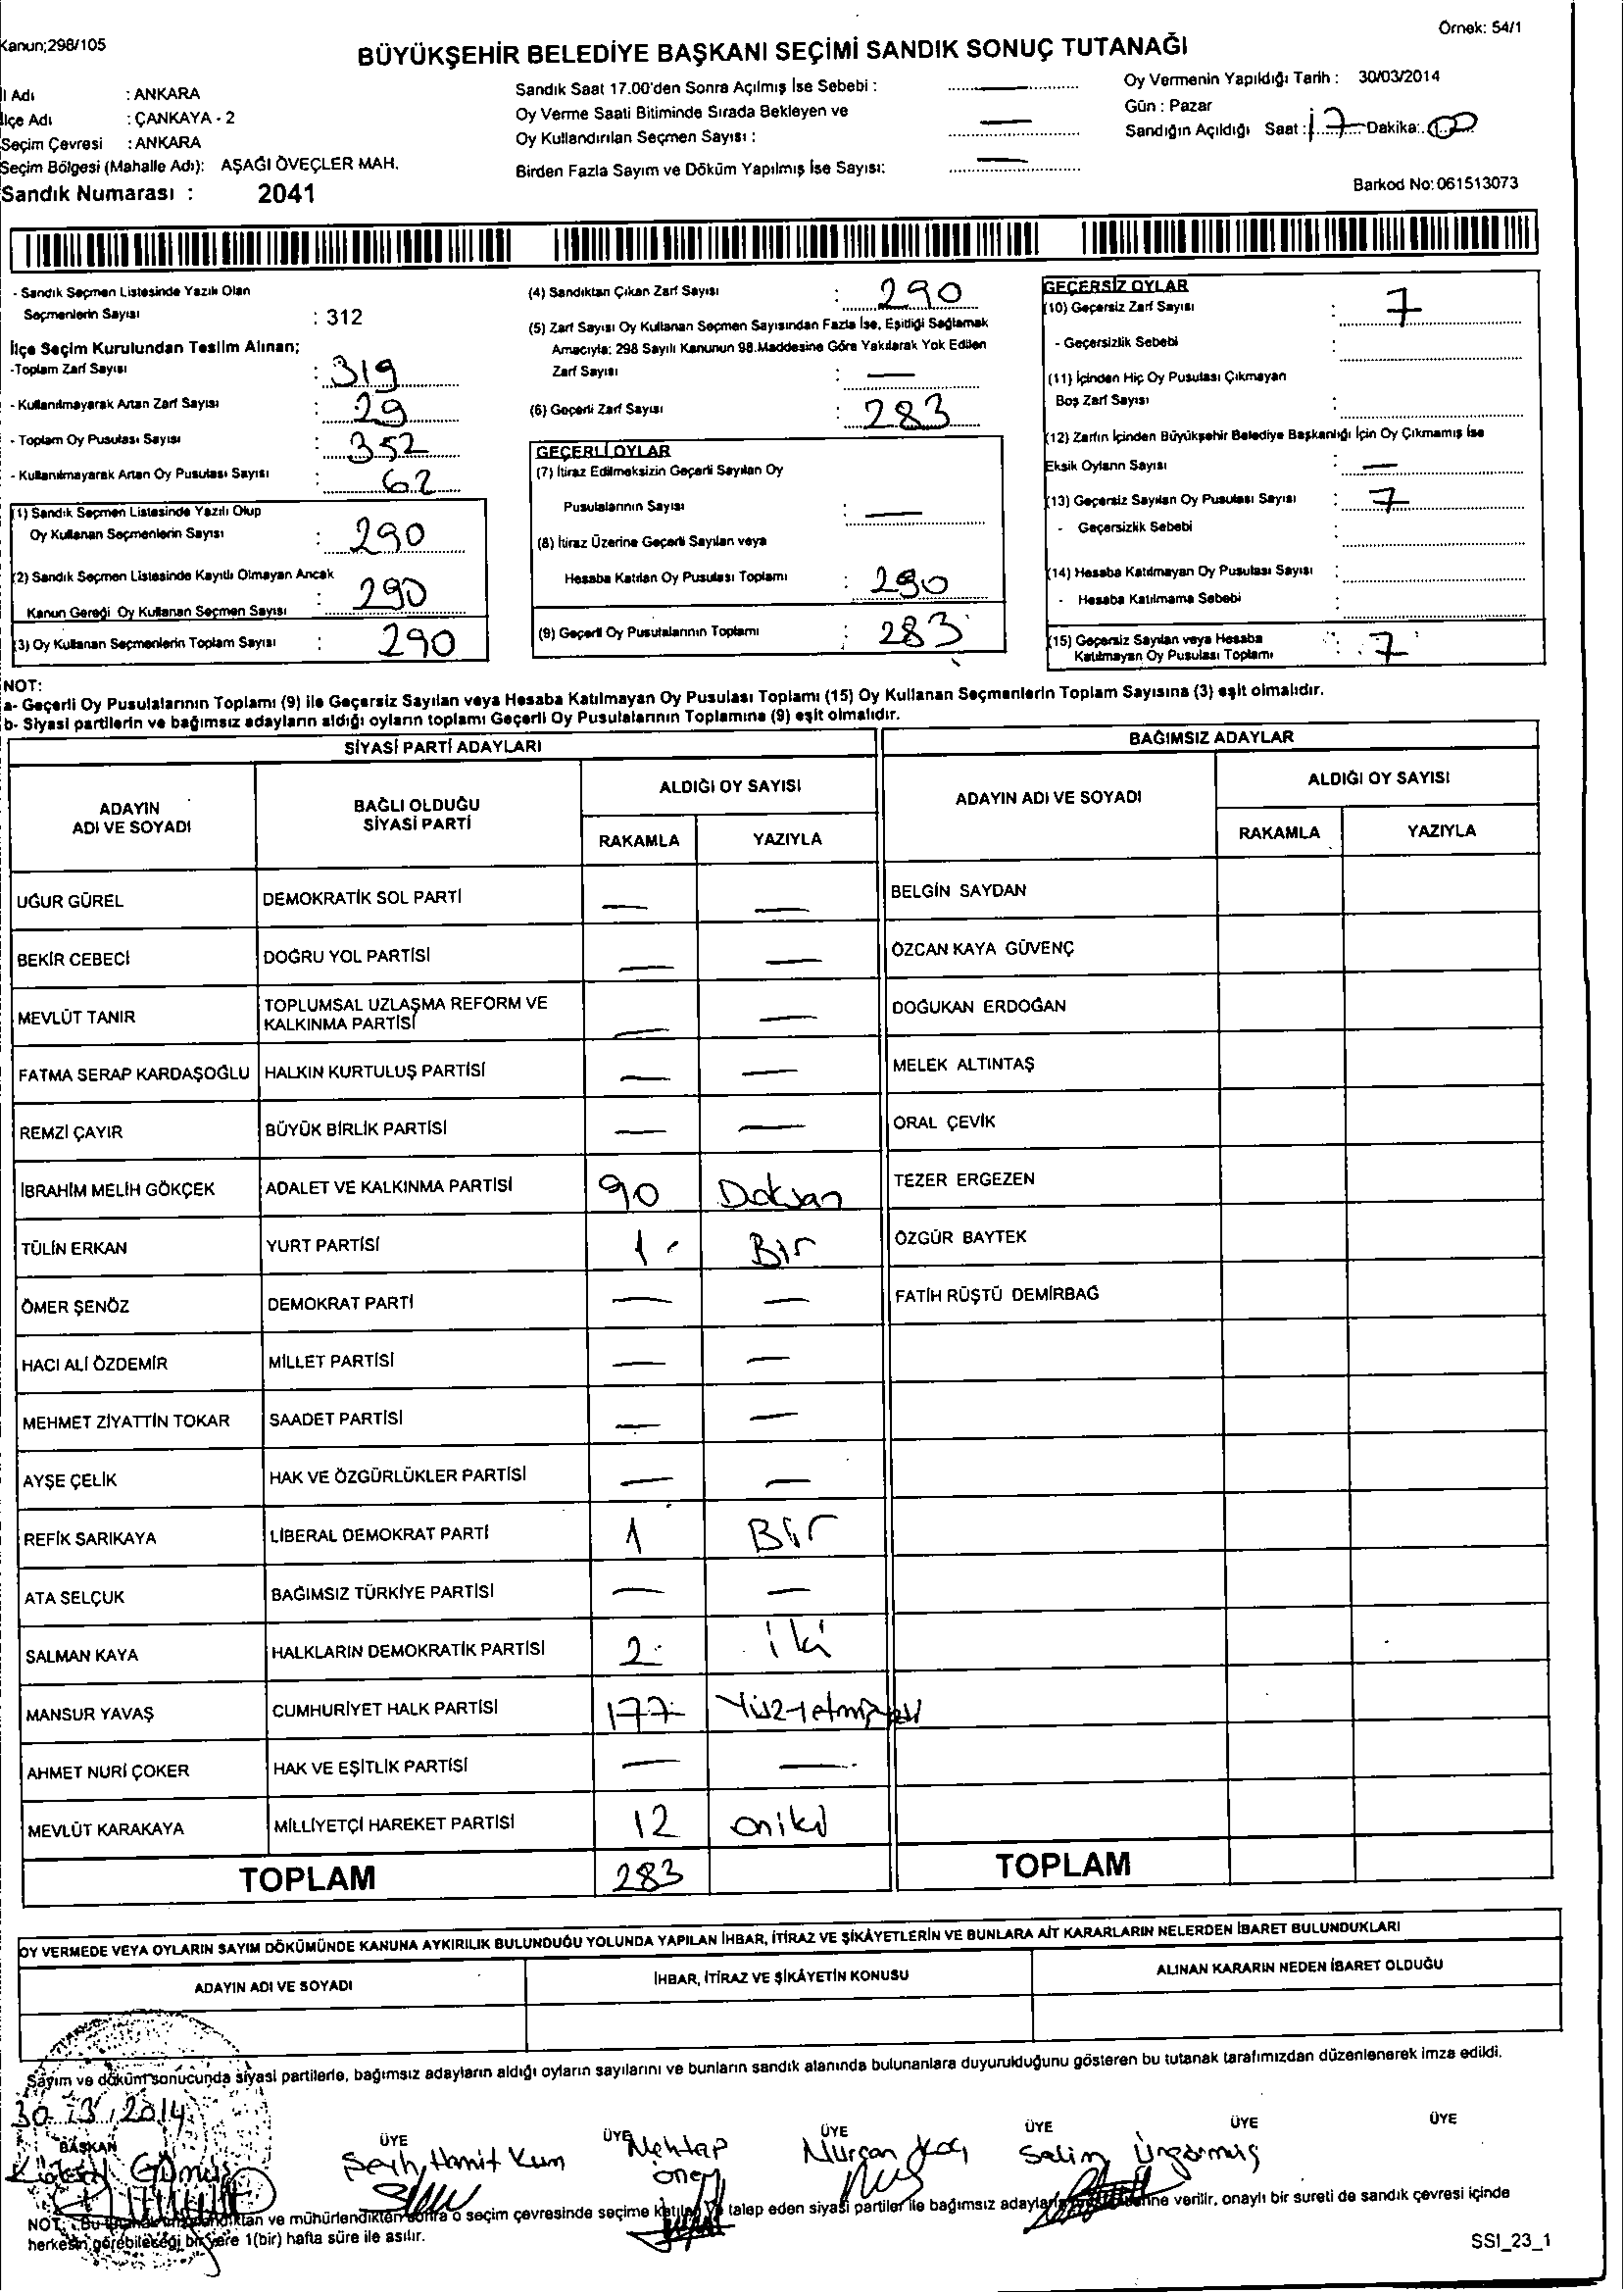 Kanun;298/105
Örnek: 54/1
BÜYÜKŞEHİR BELEDİYE BAŞKANI SEÇİMİ SANDIK SONUÇ TUTANAĞI
İl Adı : ANKARA
İlçe Adı : ÇANKAYA - 2
Seçim Çevresi : ANKARA
Seçim Bölgesi (Mahalle Adı): AŞAĞI ÖVEÇLER MAH.
Sandık Numarası : 2041
Sandık Saat 17.00'den Sonra Açılmış İse Sebebi : —
Oy Verme Saati Bitiminde Sırada Bekleyen ve
Oy Kullandırılan Seçmen Sayısı : —
Birden Fazla Sayım ve Döküm Yapılmış İse Sayısı: —
Oy Vermenin Yapıldığı Tarih : 30/03/2014
Gün : Pazar
Sandığın Açıldığı Saat : 17 Dakika: 00
Barkod No: 061513073
- Sandık Seçmen Listesinde Yazılı Olan
Seçmenlerin Sayısı : 312
İlçe Seçim Kurulundan Teslim Alınan;
-Toplam Zarf Sayısı : 319
- Kullanılmayarak Artan Zarf Sayısı : 29
- Toplam Oy Pusulası Sayısı : 352
- Kullanılmayarak Artan Oy Pusulası Sayısı : 62
(1) Sandık Seçmen Listesinde Yazılı Olup
Oy Kullanan Seçmenlerin Sayısı : 290
(2) Sandık Seçmen Listesinde Kayıtlı Olmayan Ancak
Kanun Gereği Oy Kullanan Seçmen Sayısı : 290
(3) Oy Kullanan Seçmenlerin Toplam Sayısı : 290
(4) Sandıktan Çıkan Zarf Sayısı : 290
(5) Zarf Sayısı Oy Kullanan Seçmen Sayısından Fazla İse, Eşitliği Sağlamak
Amacıyla; 298 Sayılı Kanunun 98.Maddesine Göre Yakılarak Yok Edilen
Zarf Sayısı : —
(6) Geçerli Zarf Sayısı : 283
GEÇERLİ OYLAR
(7) İtiraz Edilmeksizin Geçerli Sayılan Oy
Pusulalarının Sayısı : —
(8) İtiraz Üzerine Geçerli Sayılan veya
Hesaba Katılan Oy Pusulası Toplamı : 290
(9) Geçerli Oy Pusulalarının Toplamı : 283
GEÇERSİZ OYLAR
(10) Geçersiz Zarf Sayısı : 7
- Geçersizlik Sebebi :
(11) İçinden Hiç Oy Pusulası Çıkmayan
Boş Zarf Sayısı :
(12) Zarfın İçinden Büyükşehir Belediye Başkanlığı İçin Oy Çıkmamış İse
Eksik Oyların Sayısı : —
(13) Geçersiz Sayılan Oy Pusulası Sayısı : 7
- Geçersizlik Sebebi :
(14) Hesaba Katılmayan Oy Pusulası Sayısı :
- Hesaba Katılmama Sebebi :
(15) Geçersiz Sayılan veya Hesaba
Katılmayan Oy Pusulası Toplamı : 7
NOT:
a- Geçerli Oy Pusulalarının Toplamı (9) ile Geçersiz Sayılan veya Hesaba Katılmayan Oy Pusulası Toplamı (15) Oy Kullanan Seçmenlerin Toplam Sayısına (3) eşit olmalıdır.
b- Siyasi partilerin ve bağımsız adayların aldığı oyların toplamı Geçerli Oy Pusulalarının Toplamına (9) eşit olmalıdır.
SİYASİ PARTİ ADAYLARI
ADAYIN ADI VE SOYADI BAĞLI OLDUĞU SİYASİ PARTİ ALDIĞI OY SAYISI
RAKAMLA YAZIYLA
UĞUR GÜREL DEMOKRATİK SOL PARTİ — —
BEKİR CEBECİ DOĞRU YOL PARTİSİ — —
MEVLÜT TANIR TOPLUMSAL UZLAŞMA REFORM VE KALKINMA PARTİSİ — —
FATMA SERAP KARDAŞOĞLU HALKIN KURTULUŞ PARTİSİ — —
REMZİ ÇAYIR BÜYÜK BİRLİK PARTİSİ — —
İBRAHİM MELİH GÖKÇEK ADALET VE KALKINMA PARTİSİ 90 Doksan
TÜLİN ERKAN YURT PARTİSİ 1 Bir
ÖMER ŞENÖZ DEMOKRAT PARTİ — —
HACI ALİ ÖZDEMİR MİLLET PARTİSİ — —
MEHMET ZİYATTİN TOKAR SAADET PARTİSİ — —
AYŞE ÇELİK HAK VE ÖZGÜRLÜKLER PARTİSİ — —
REFİK SARIKAYA LİBERAL DEMOKRAT PARTİ 1 Bir
ATA SELÇUK BAĞIMSIZ TÜRKİYE PARTİSİ — —
SALMAN KAYA HALKLARIN DEMOKRATİK PARTİSİ 2 iki
MANSUR YAVAŞ CUMHURİYET HALK PARTİSİ 177
AHMET NURİ ÇOKER HAK VE EŞİTLİK PARTİSİ — —
MEVLÜT KARAKAYA MİLLİYETÇİ HAREKET PARTİSİ 12 oniki
TOPLAM 283
BAĞIMSIZ ADAYLAR
ADAYIN ADI VE SOYADI ALDIĞI OY SAYISI
RAKAMLA YAZIYLA
BELGİN SAYDAN
ÖZCAN KAYA GÜVENÇ
DOĞUKAN ERDOĞAN
MELEK ALTINTAŞ
ORAL ÇEVİK
TEZER ERGEZEN
ÖZGÜR BAYTEK
FATİH RÜŞTÜ DEMİRBAĞ
TOPLAM
OY VERMEDE VEYA OYLARIN SAYIM DÖKÜMÜNDE KANUNA AYKIRILIK BULUNDUĞU YOLUNDA YAPILAN İHBAR, İTİRAZ VE ŞİKÂYETLERİN VE BUNLARA AİT KARARLARIN NELERDEN İBARET BULUNDUKLARI
ADAYIN ADI VE SOYADI İHBAR, İTİRAZ VE ŞİKÂYETİN KONUSU ALINAN KARARIN NEDEN İBARET OLDUĞU
Sayım ve döküm sonucunda siyasi partilerle, bağımsız adayların aldığı oyların sayılarını ve bunların sandık alanında bulunanlara duyurulduğunu gösteren bu tutanak tarafımızdan düzenlenerek imza edildi.
30.3.2014
BAŞKAN ÜYE ÜYE ÜYE ÜYE ÜYE ÜYE
Hamit Kum
Mehtap
Nurcan Koç
Salim
NOT: ve mühürlendikten sonra o seçim çevresinde seçime katılan ve talep eden siyasi partiler ile bağımsız verilir, onaylı bir sureti de sandık çevresi içinde
herkesin görebileceği bir yere 1(bir) hafta süre ile asılır.
SSI_23_1